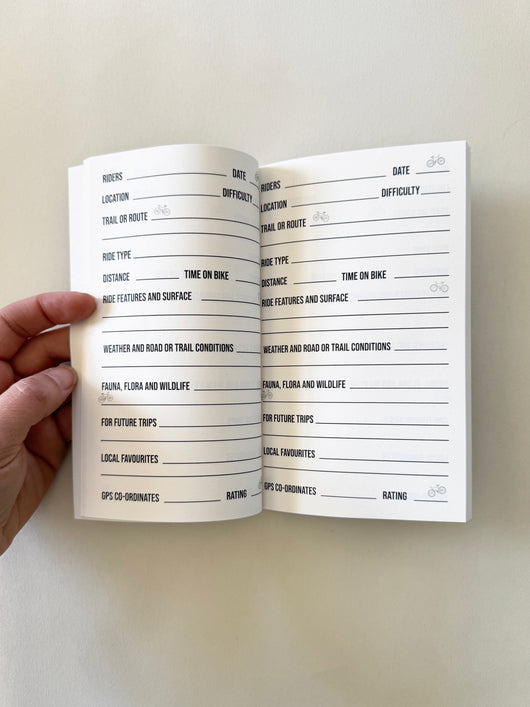 RIDERS DATE
LOCATION DIFFICULTY
TRAIL OR ROUTE
RIDE TYPE
DISTANCE TIME ON BIKE
RIDE FEATURES AND SURFACE
WEATHER AND ROAD OR TRAIL CONDITIONS
FAUNA, FLORA AND WILDLIFE
FOR FUTURE TRIPS
LOCAL FAVOURITES
GPS CO-ORDINATES RATING
RIDERS DATE
LOCATION DIFFICULTY
TRAIL OR ROUTE
RIDE TYPE
DISTANCE TIME ON BIKE
RIDE FEATURES AND SURFACE
WEATHER AND ROAD OR TRAIL CONDITIONS
FAUNA, FLORA AND WILDLIFE
FOR FUTURE TRIPS
LOCAL FAVOURITES
GPS CO-ORDINATES RATING